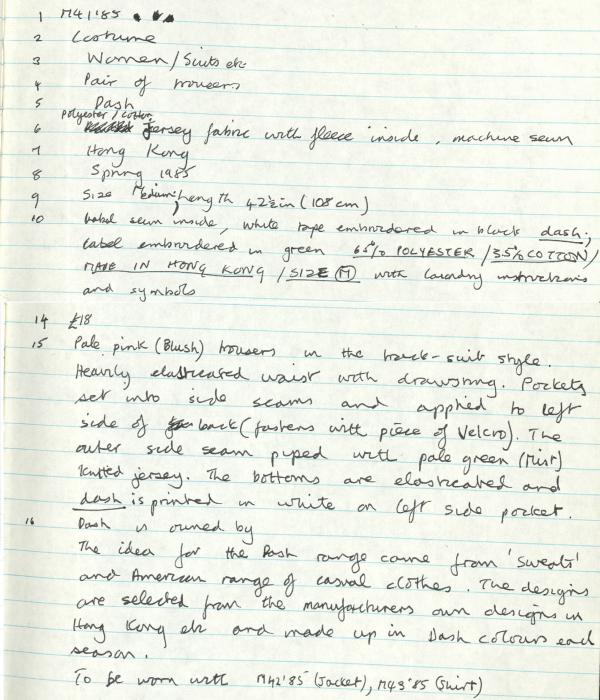 1 M41'85
2 Costume
3 Women/Suits etc
4 Pair of trousers
5 Dash
polyester/cotton
6 Jersey fabric with fleece inside, machine sewn
7 Hong Kong
8 Spring 1985
9 Size Medium, Length 42½in (108cm)
10 Label sewn inside, white tape embroidered in black dash;
label embroidered in green 65% POLYESTER / 35% COTTON /
MADE IN HONG KONG / SIZE M with laundry instructions
and symbols
14 £18
15 Pale pink (Blush) trousers in the track-suit style.
Heavily elasticated waist with drawstring. Pockets
set into side seams and applied to left
side of back (fastens with piece of Velcro). The
outer side seam piped with pale green (Mint)
knitted jersey. The bottoms are elasticated and
dash is printed in white on left side pocket.
16 Dash is owned by
The idea for the Dash range came from 'Sweats'
and American range of casual clothes. The designs
are selected from the manufacturers own designs in
Hong Kong etc and made up in Dash colours each
season.
To be worn with M42'85 (Jacket), M43'85 (Shirt)